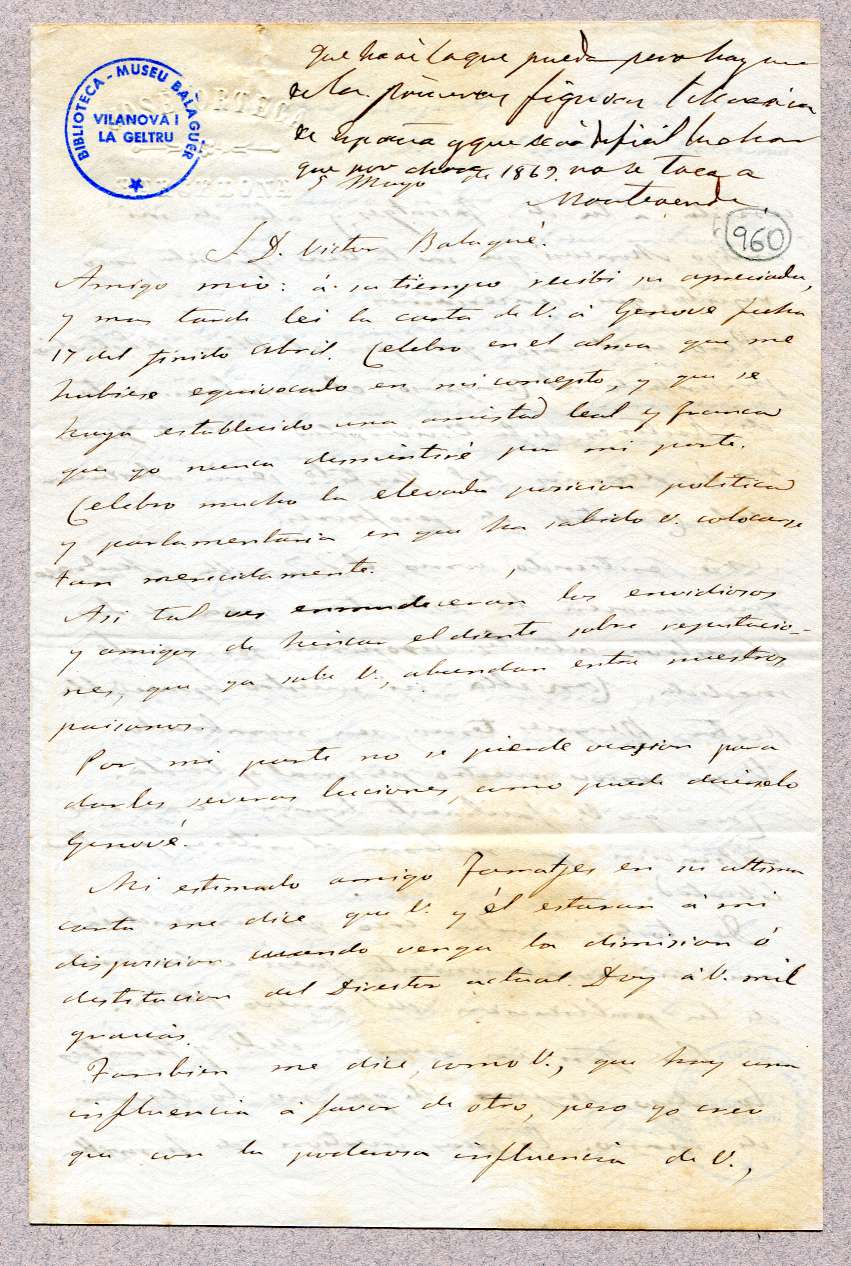 BIBLIOTECA - MUSEU BALAGUER
VILANOVA I
LA GELTRU
JOSÉ ORTEGA
BARCELONE
que haré lo que pueda pero hay una
de las primeras figuras literarias
de España y que será difícil luchar
que por ahora no se toca a
Monteverde.
5 Mayo de 1869.
960
S. D. Victor Balagué.
Amigo mio: á su tiempo recibí su apreciada,
y mas tarde lei la carta de V. á Genové fecha
17 del finido Abril. Celebro en el alma que me
hubiese equivocado en mi concepto, y que se
haya establecido una amistad leal y franca
que yo nunca desmentiré por mi parte.
Celebro mucho la elevada posicion politica
y parlamentaria en que ha sabido V. colocarse
tan merecidamente.
Asi tal ves enmudeceran los envidiosos
y amigos de hincar el diente sobre reputacio-
nes, que ya sabe V., abundan entre nuestros
paisanos.
Por mi parte no se pierde ocasion para
darles severas lecciones, como puede decirselo
Genové.
Mi estimado amigo Famatjes en su ultima
carta me dice que V. y él estaran á mi
disposicion cuando venga la dimision ó
destitucion del Director actual. Doy á V. mil
gracias.
Tambien me dice, como V., que hay una
influencia á favor de otro, pero yo creo
que con la poderosa influencia de V.,